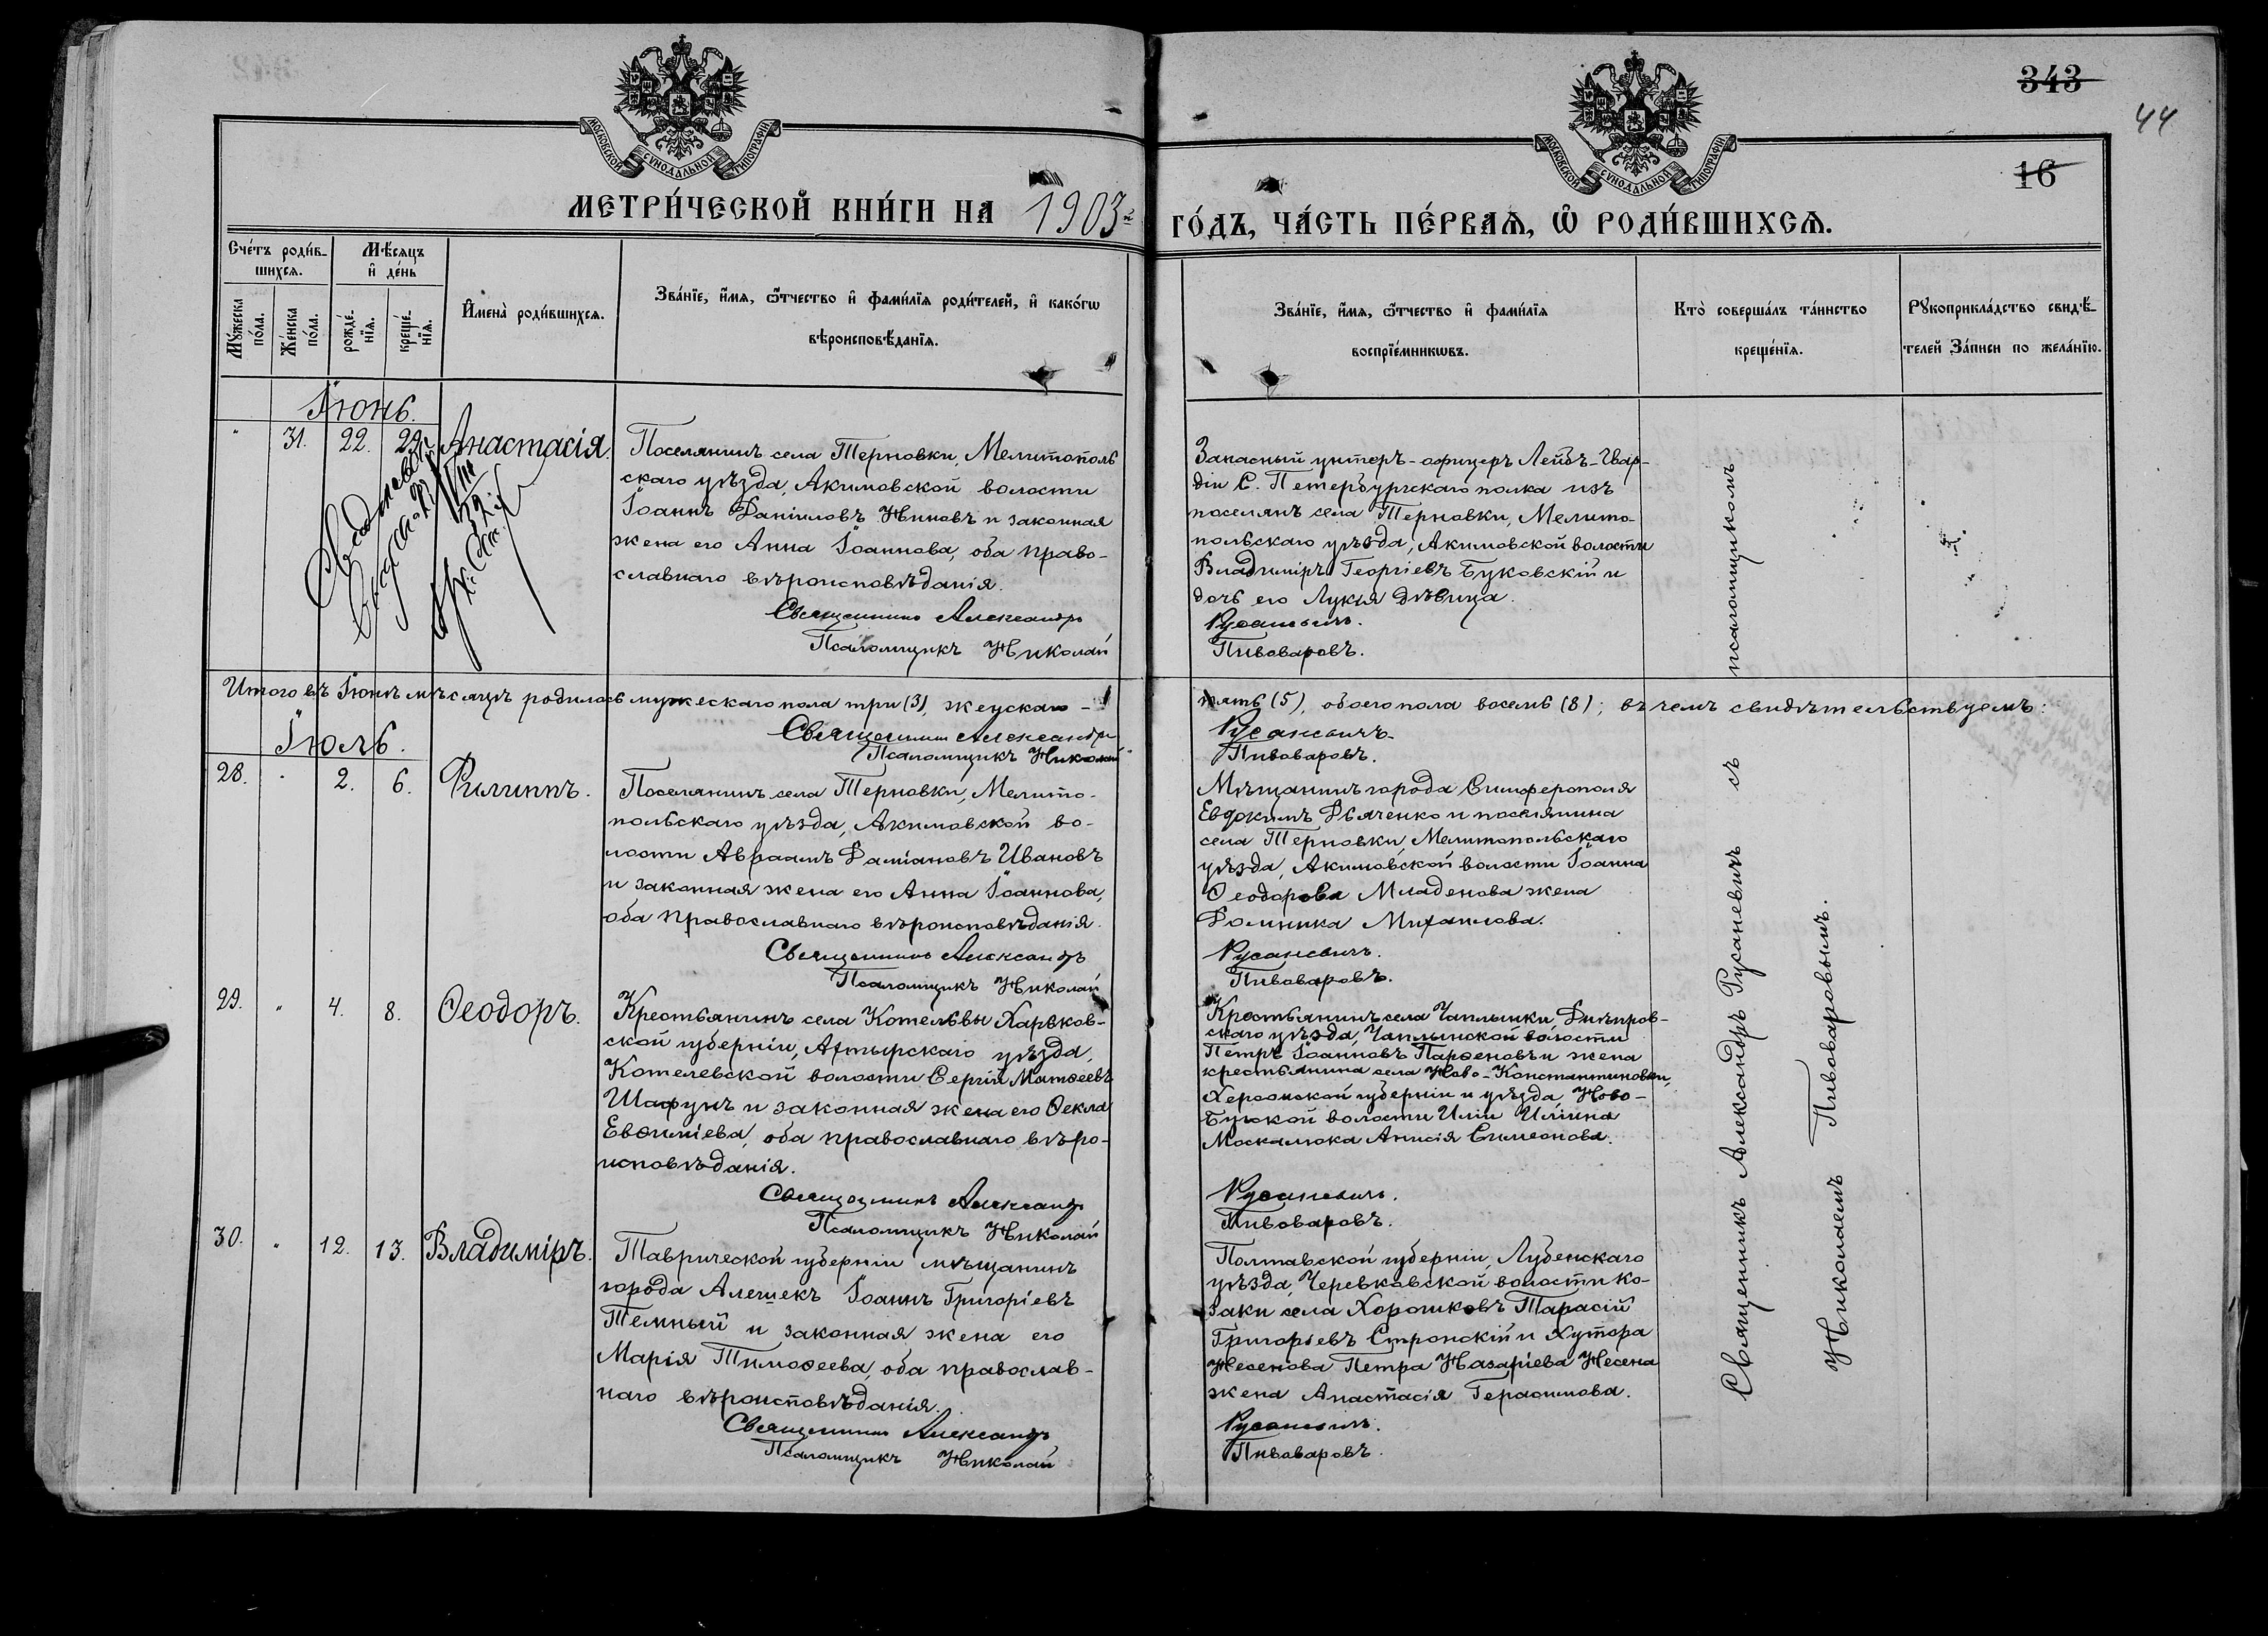 343
44
16
МОСКОВСКОЙ СУНОДАЛЬНОЙ ТИПОГРАФІИ
МОСКОВСКОЙ СУНОДАЛЬНОЙ ТИПОГРАФІИ
МЕТРИ́ЧЕСКОЙ КНИ́ГИ НА 1903й
ГО́ДЪ, ЧА́СТЬ ПЕ́РВАѦ, Ѡ҆ РОДИ́ВШИХСѦ.
Сче́тъ роди́в-
шихсѧ.
Мѣ́сѧцъ
и҆ де́нь
Мꙋ́жеска
по́ла.
Же́нска
по́ла.
рожде́-
нїѧ.
креще́-
нїѧ.
И҆мена̀ роди́вшихсѧ.
Зва́нїе, и҆́мѧ, ѻ҆́тчество и҆ фами́лїѧ роди́телей, и҆ како́гѡ
вѣроисповѣ́данїѧ.
Зва́нїе, и҆́мѧ, ѻ҆́тчество и҆ фами́лїѧ
воспрїе́мникѡвъ.
Кто̀ соверша́лъ та́инство
креще́нїѧ.
Рꙋкоприкла́дство свидѣ́-
телей За́писи по жела́нїю.
Іюнь.
" 31. 22. 29. Анастасія.
Поселянинъ села Терновки, Мелитополь
скаго уѣзда, Акимовской волости
Іоаннъ Даніиловъ Ниновъ и законная
жена его Анна Іоаннова, оба право-
славнаго вѣроисповѣданія.
Священникъ Александръ
Псаломщикъ Николай
Запасный унтеръ-офицеръ Лейбъ-Гвар-
діи С. Петербургскаго полка изъ
поселянъ села Терновки, Мелито-
польскаго уѣзда, Акимовской волости
Владиміръ Георгіевъ Буковскій и
дочь его Лукія дѣвица.
Русаневичъ.
Пивоваровъ.
Итого въ Іюнѣ мѣсяцѣ родилось мужескаго пола три (3), женскаго -
пять (5), обоего пола восемь (8); въ чемъ свидѣтельствуемъ:
Священникъ Александръ
Псаломщикъ Николай
Русаневичъ.
Пивоваровъ.
Іюль.
28. " 2. 6. Филиппъ.
Поселянинъ села Терновки, Мелито-
польскаго уѣзда, Акимовской во-
лости Авраамъ Даміановъ Ивановъ
и законная жена его Анна Іоаннова,
оба православнаго вѣроисповѣданія.
Священникъ Александръ
Псаломщикъ Николай
Мѣщанинъ города Симферополя
Евдокимъ Дьяченко и поселянина
села Терновки, Мелитопольскаго
уѣзда, Акимовской волости Іоанна
Ѳеодорова Младенова жена
Домника Михаилова.
Русаневичъ.
Пивоваровъ.
29. " 4. 8. Ѳеодоръ.
Крестьянинъ села Котельвы Харьков-
ской губерніи, Ахтырскаго уѣзда,
Котелевской волости Сергій Матѳеевъ
Шафунъ и законная жена его Ѳекла
Евѳиміева, оба православнаго вѣро-
исповѣданія.
Священникъ Александръ
Псаломщикъ Николай
Крестьянинъ села Чаплынки Днѣпров-
скаго уѣзда, Чаплынской волости
Петръ Іоанновъ Парѳеновъ и жена
крестьянина села Ново-Константиновки,
Херсонской губерніи и уѣзда, Ново-
Бугской волости Иліи Иліина
Москалюка Анисія Симеонова.
Русаневичъ.
Пивоваровъ.
30. " 12. 13. Владиміръ.
Таврической губерніи мѣщанинъ
города Алешекъ Іоаннъ Григоріевъ
Темный и законная жена его
Марія Тимоѳеева, оба православ-
наго вѣроисповѣданія.
Священникъ Александръ
Псаломщикъ Николай
Полтавской губерніи, Лубенскаго
уѣзда, Черевковской волости ко-
заки села Хорошковъ Тарасій
Григорьевъ Стронскій и хутора
Несенова Петра Назаріева Несена
жена Анастасія Герасимова.
Русаневичъ.
Пивоваровъ.
Священникъ Александръ Русаневичъ съ псаломщикомъ
Николаемъ Пивоваровымъ.